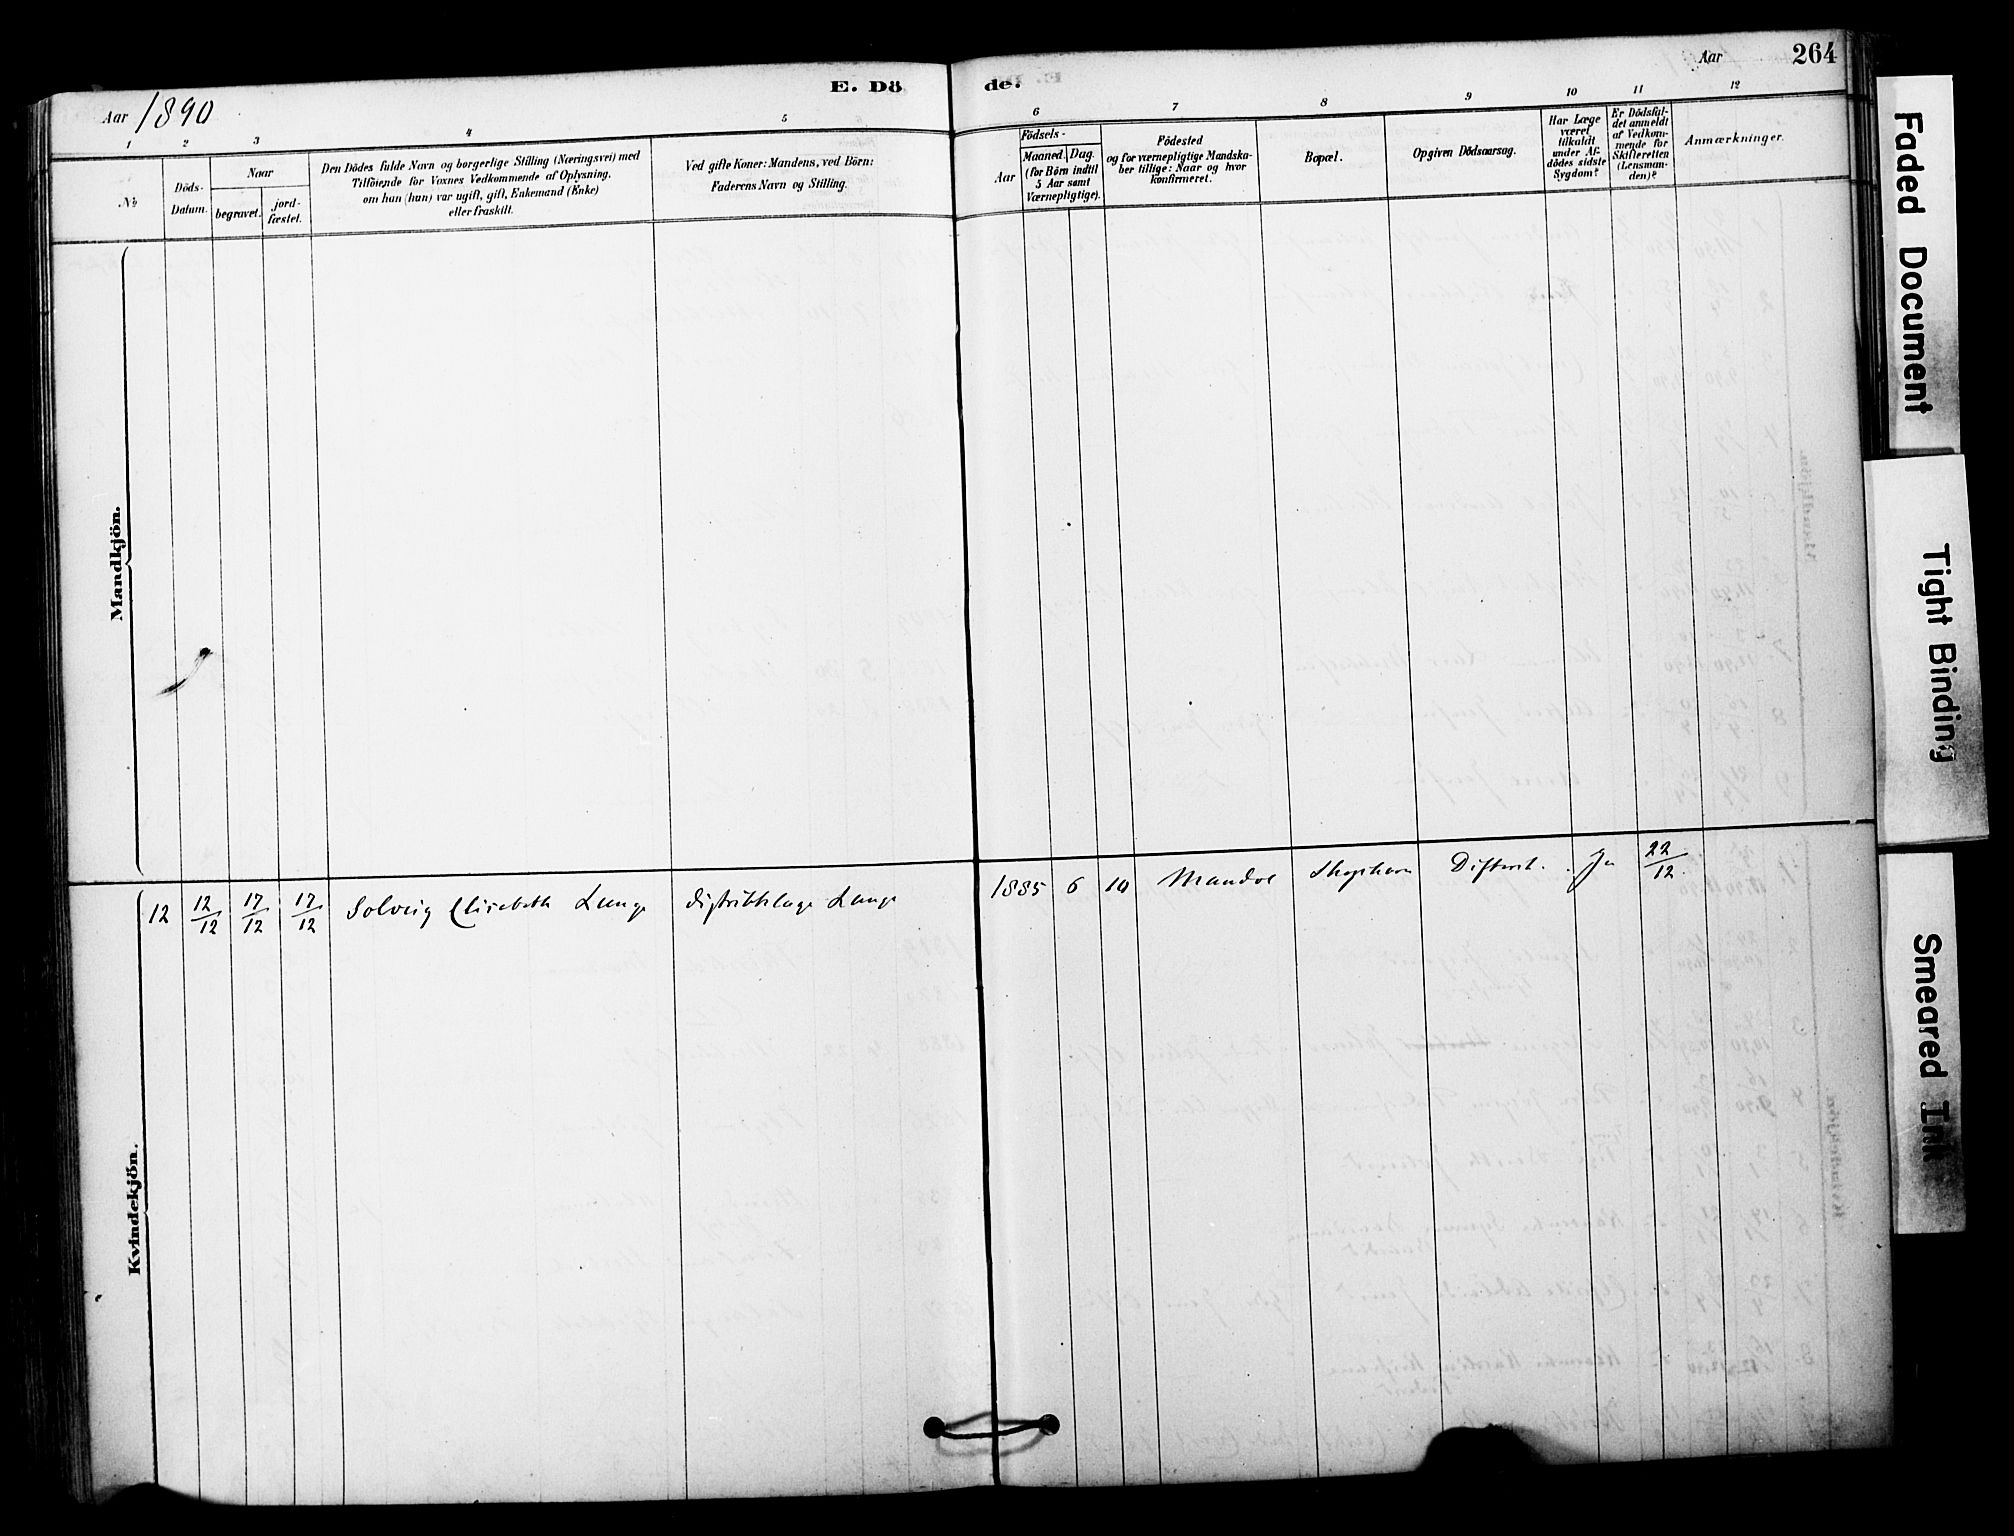 E. Dö de.
Aar 1890
Aar
264
1 2 3 4 5 6 7 8 9 10 11 12
№
Döds-
Datum.
Naar
begravet.
jord-
fæstet.
Den Dödes fulde Navn og borgerlige Stilling (Næringsvei) med
Tilföiende for Voxnes Vedkommende af Oplysning,
om han (hun) var ugift, gift, Enkemand (Enke)
eller fraskilt.
Ved gifte Koner: Mandens, ved Börn:
Faderens Navn og Stilling.
Födsels-
Aar
Maaned. Dag.
(for Börn indtil
5 Aar samt
Værnepligtige).
Födested
og for værnepligtige Mandska-
ber tillige: Naar og hvor
konfirmeret.
Bopæl.
Opgiven Dödsaarsag.
Har Læge
været
tilkaldt
under Af-
dödes sidste
Sygdom?
Er Dödsfal-
det anmeldt
af Vedkom-
mende for
Skifteretten
(Lensman-
den)?
Anmærkninger.
Mandkjön.
Kvindekjön.
12 12/12 17/12 17/12 Solveig Elisabeth Lunge distriktslæge Lunge 1885 6 10 Mandal Difterit. Ja 22/12.
Faded Document
Tight Binding
Smeared Ink